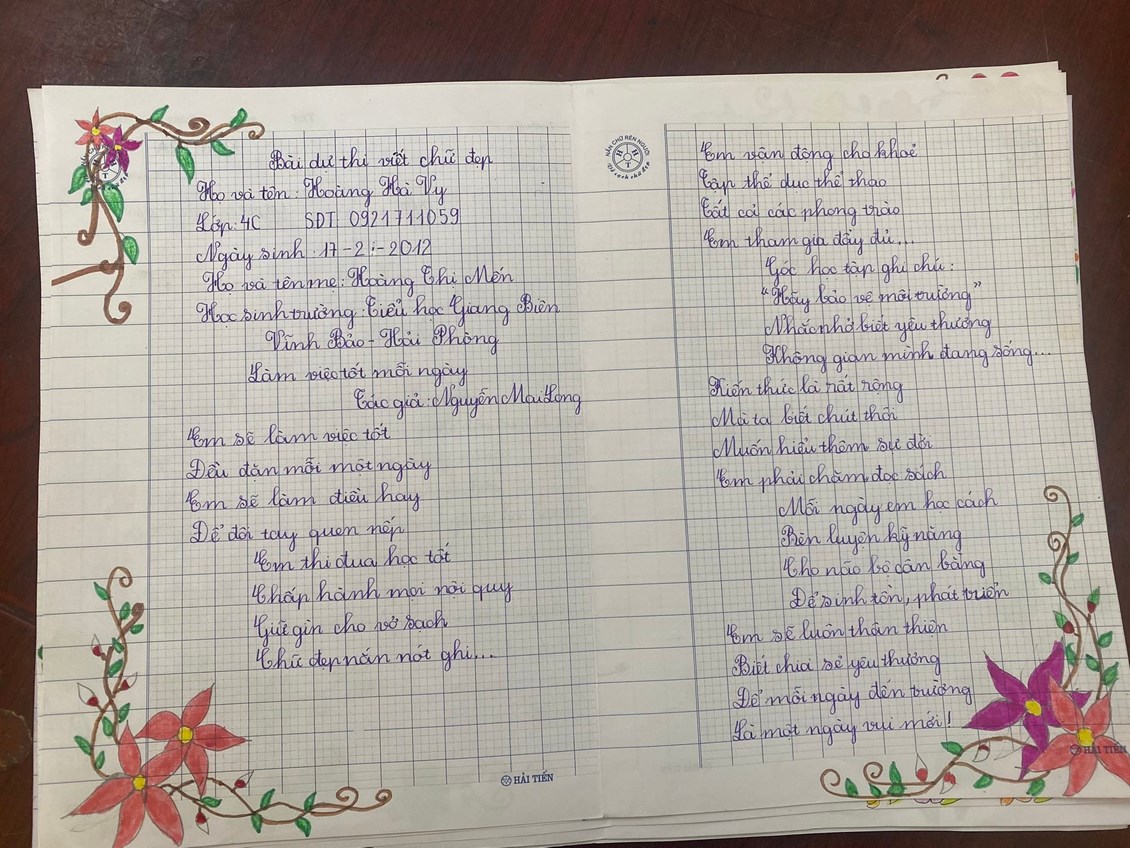 Bài dự thi viết chữ đẹp
Họ và tên: Hoàng Hà Vy
Lớp: 4C SDT 0921711059
Ngày sinh: 17-2:-2012
Họ và tên mẹ: Hoàng Thị Mến
Học sinh trường: Tiểu học Giang Biên
Vĩnh Bảo - Hải Phòng
Làm việc tốt mỗi ngày
Tác giả: Nguyễn Mai Long
Em sẽ làm việc tốt
Đều đặn mỗi một ngày
Em sẽ làm điều hay
Để đôi tay quen nếp
Em thi đua học tốt
Chấp hành mọi nội quy
Giữ gìn cho vở sạch
Chữ đẹp nắn nót ghi...
HẢI TIẾN
NẮN CHỮ RÈN NGƯỜI
Vở sạch chữ đẹp
Em vận động cho khoẻ
Tập thể dục thể thao
Tất cả các phong trào
Em tham gia đầy đủ...
Góc học tập ghi chú:
"Hãy bảo vệ môi trường"
Nhắc nhở biết yêu thương
Không gian mình đang sống...
Kiến thức là rất rộng
Mà ta biết chút thôi
Muốn hiểu thêm sự đời
Em phải chăm đọc sách
Mỗi ngày em học cách
Rèn luyện kỹ năng
Cho não bộ cân bằng
Để sinh tồn, phát triển
Em sẽ luôn thân thiện
Biết chia sẻ yêu thương
Để mỗi ngày đến trường
Là một ngày vui mới!
HẢI TIẾN